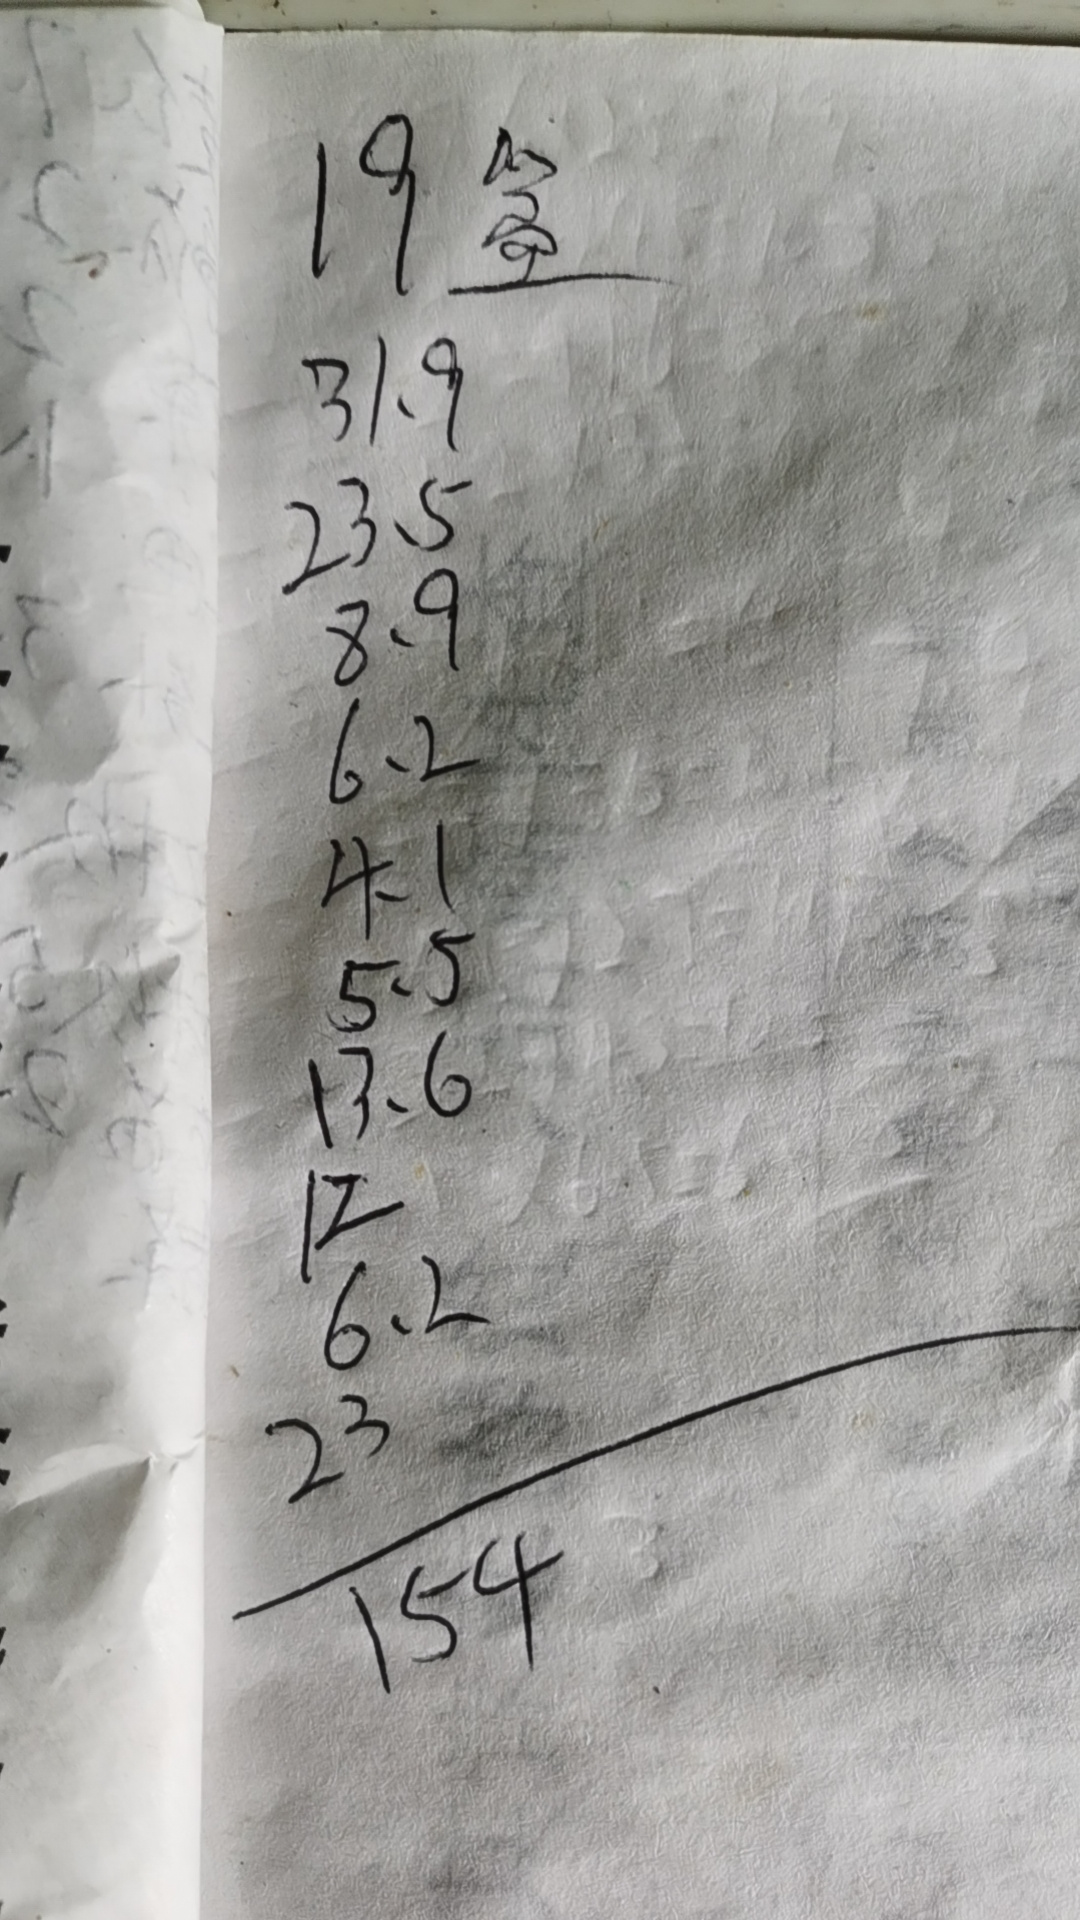 19
31.9
23.5
8.9
6.2
4.1
5.5
13.6
12
6.2
23
154